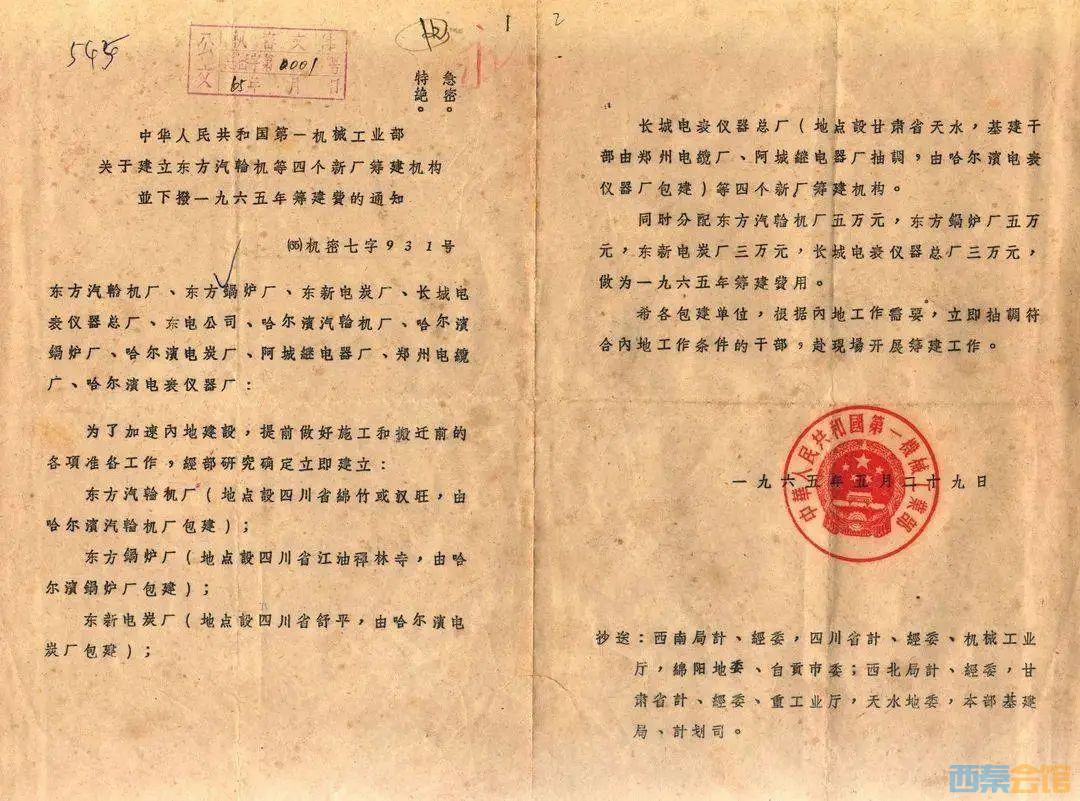 54
公文
0001号
65年 月 日
1
2
急密。
特绝。
中华人民共和国第一机械工业部
关于建立东方汽輪机等四个新厂筹建机构
並下撥一九六五年筹建費的通知
(65)机密七字931号
东方汽輪机厂、东方鍋炉厂、东新电炭厂、长城电
表仪器总厂、东电公司、哈尔濱汽輪机厂、哈尔濱
鍋炉厂、哈尔濱电炭厂、阿城继电器厂、郑州电缆
厂、哈尔濱电表仪器厂：
为了加速內地建設，提前做好施工和搬迁前的
各項准备工作，經部研究确定立即建立：
东方汽輪机厂（地点設四川省綿竹或汉旺，由
哈尔濱汽輪机厂包建）；
东方鍋炉厂（地点設四川省江油禪林寺，由哈
尔濱鍋炉厂包建）；
东新电炭厂（地点設四川省舒平，由哈尔濱电
炭厂包建）；
长城电表仪器总厂（地点設甘肃省天水，基建干
部由郑州电缆厂、阿城继电器厂抽調，由哈尔濱电表
仪器厂包建）等四个新厂筹建机构。
同时分配东方汽輪机厂五万元，东方鍋炉厂五万
元，东新电炭厂三万元，长城电表仪器总厂三万元，
做为一九六五年筹建費用。
希各包建单位，根据內地工作需要，立即抽調符
合內地工作条件的干部，赴現場开展筹建工作。
中華人民共和國第一機械工業部
一九六五年五月二十九日
抄送：西南局計、經委，四川省計、經委、机械工业
厅，綿阳地委、自貢市委；西北局計、經委，甘
肃省計、經委、重工业厅，天水地委，本部基建
局、計划司。
西秦会馆